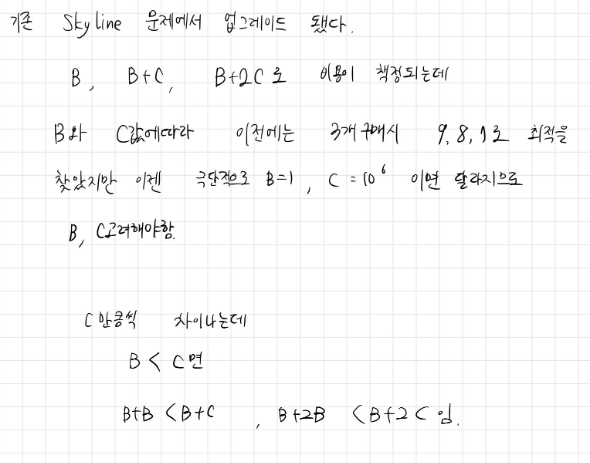 기존 Skyline 문제에서 업그레이드 됐다.
B, B+C, B+2C로 비용이 책정되는데
B와 C값에따라 이전에는 3개 구매시 9, 8, 1로 최적을
찾았지만 이젠 극단적으로 B=1, C=10⁶ 이면 달라지므로
B, C고려해야함.
C만큼씩 차이나는데
B < C면
B+B < B+C, B+2B < B+2C 임.